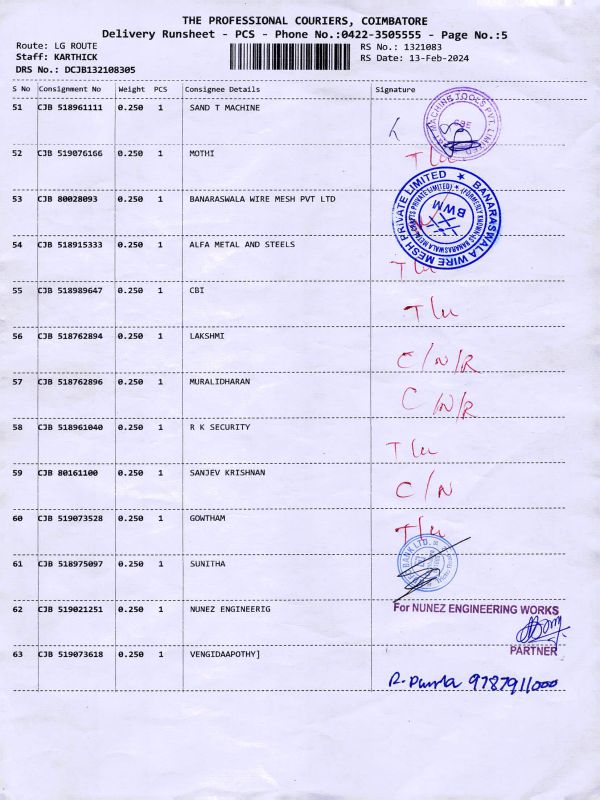 THE PROFESSIONAL COURIERS, COIMBATORE
Delivery Runsheet - PCS - Phone No.:0422-3505555 - Page No.:5
Route: LG ROUTE RS No.: 1321083
Staff: KARTHICK RS Date: 13-Feb-2024
DRS No.: DCJB132108305
S No Consignment No Weight PCS Consignee Details Signature
51 CJB 518961111 0.250 1 SAND T MACHINE
MACHINE TOOLS PVT. LIMITED
CBE
52 CJB 519076166 0.250 1 MOTHI
53 CJB 80028093 0.250 1 BANARASWALA WIRE MESH PVT LTD
BANARASWALA WIRE MESH PRIVATE LIMITED
BWM
54 CJB 518915333 0.250 1 ALFA METAL AND STEELS
55 CJB 518989647 0.250 1 CBI
56 CJB 518762894 0.250 1 LAKSHMI C/N/R
57 CJB 518762896 0.250 1 MURALIDHARAN C/N/R
58 CJB 518961040 0.250 1 R K SECURITY
59 CJB 80161100 0.250 1 SANJEV KRISHNAN C/N
60 CJB 519073528 0.250 1 GOWTHAM
61 CJB 518975097 0.250 1 SUNITHA
BANK LTD.
62 CJB 519021251 0.250 1 NUNEZ ENGINEERIG For NUNEZ ENGINEERING WORKS
PARTNER
63 CJB 519073618 0.250 1 VENGIDAAPOTHY] 9787911000